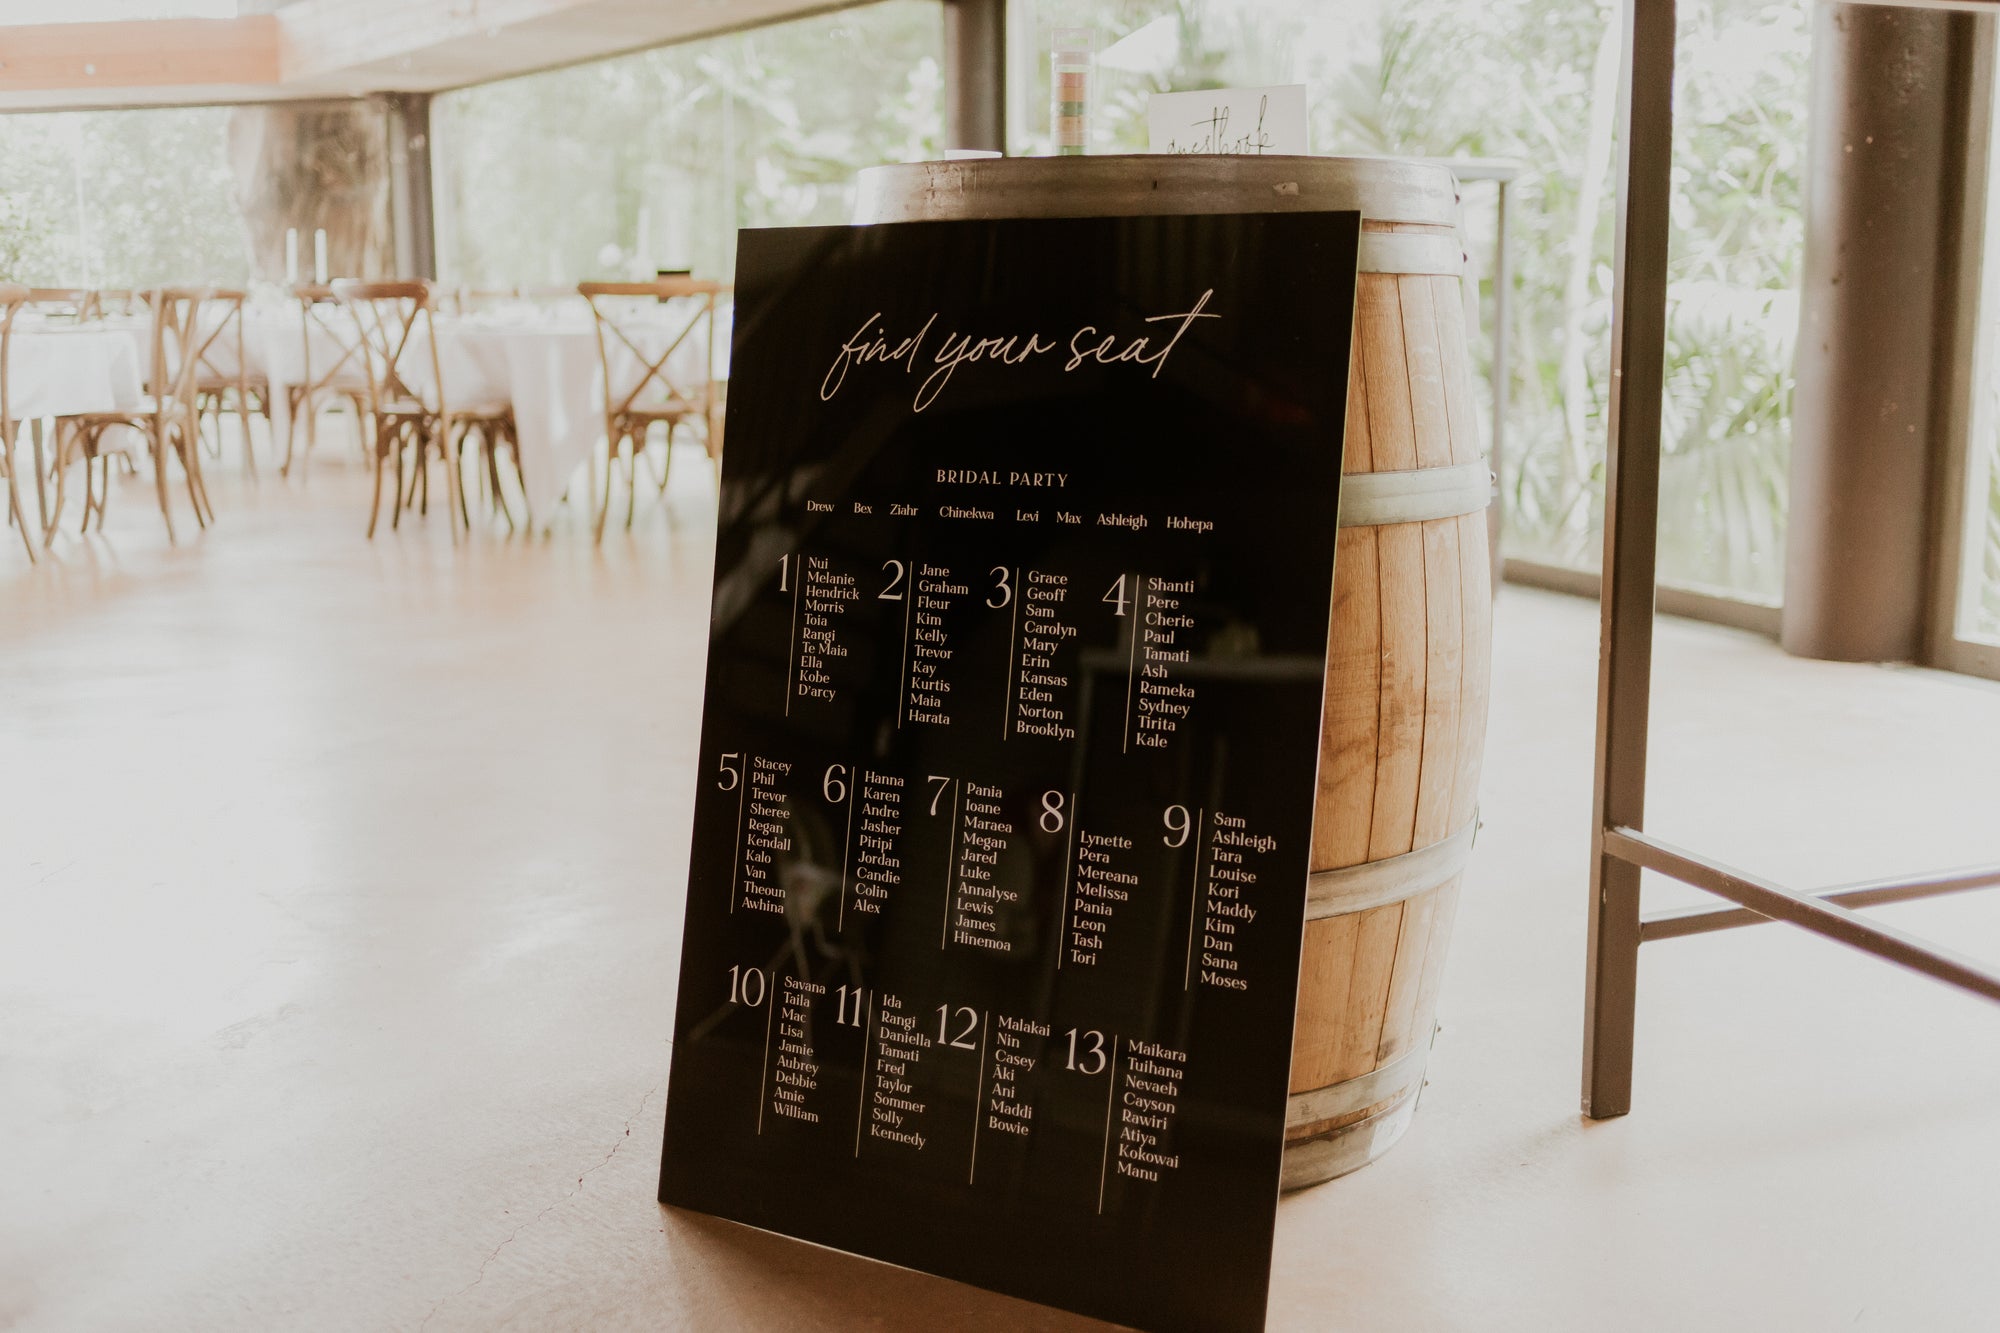 guestbook
find your seat
BRIDAL PARTY
Drew Bex Ziahr Chinekwa Levi Max Ashleigh Hohepa
1
Nui
Melanie
Hendrick
Morris
Toia
Rangi
Te Maia
Ella
Kobe
D'arcy
2
Jane
Graham
Fleur
Kim
Kelly
Trevor
Kay
Kurtis
Maia
Harata
3
Grace
Geoff
Sam
Carolyn
Mary
Erin
Kansas
Eden
Norton
Brooklyn
4
Shanti
Pere
Cherie
Paul
Tamati
Ash
Rameka
Sydney
Tirita
Kale
5
Stacey
Phil
Trevor
Sheree
Regan
Kendall
Kalo
Van
Theoun
Awhina
6
Hanna
Karen
Andre
Jasher
Piripi
Jordan
Candie
Colin
Alex
7
Pania
Ioane
Maraea
Megan
Jared
Luke
Annalyse
Lewis
James
Hinemoa
8
Lynette
Pera
Mereana
Melissa
Pania
Leon
Tash
Tori
9
Sam
Ashleigh
Tara
Louise
Kori
Maddy
Kim
Dan
Sana
Moses
10
Savana
Taila
Mac
Lisa
Jamie
Aubrey
Debbie
Amie
William
11
Ida
Rangi
Daniella
Tamati
Fred
Taylor
Sommer
Solly
Kennedy
12
Malakai
Nin
Casey
Āki
Ani
Maddi
Bowie
13
Maikara
Tuihana
Nevaeh
Cayson
Rawiri
Atiya
Kokowai
Manu